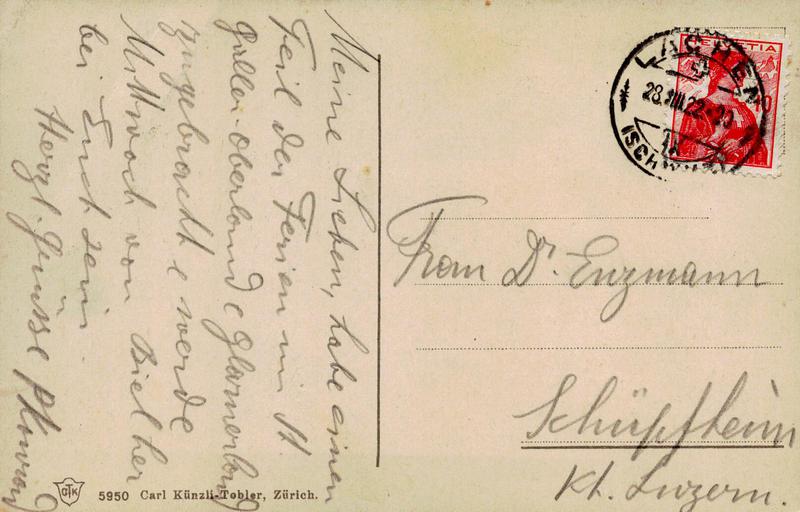 Meine Lieben, habe einen
Teil der Ferien im St.
Galler-Oberland & Glarnerland
zugebracht & werde
Mittwoch von Biel her
bei Euch sein.
Herzl. Grüsse
HELVETIA
10
28.VIII.22
Frau Dr. Enzmann
Schüpfheim
Kt. Luzern.
CTK
5950 Carl Künzli-Tobler, Zürich.